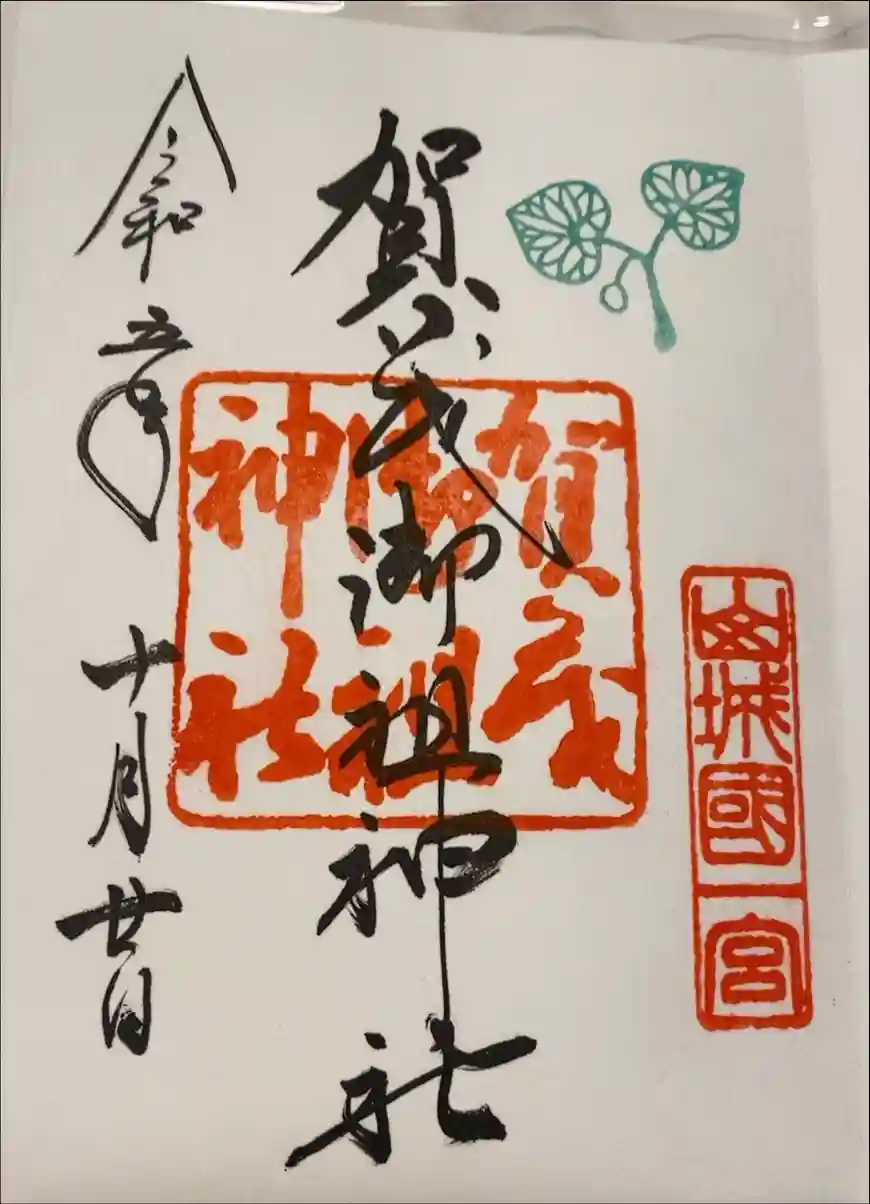 山城國一宮
賀茂御祖神社
賀茂
御祖
神社
令和五年十月廿日